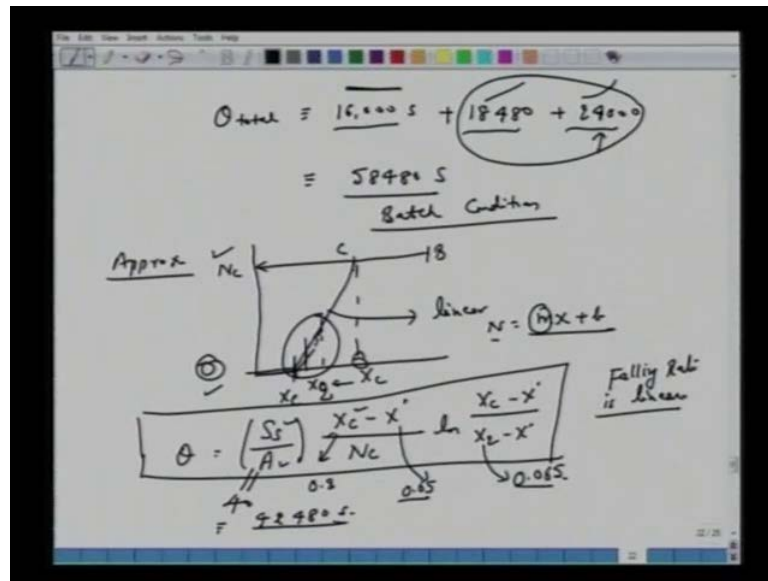 File Edit View Insert Actions Tools Help
θ total ≡ 16,000 s + 18480 + 24000
≡ 58480 S
Batch Condition
Approx ✓ Nc C B
linear N = mx + b
0 x* x2 ← xc
Falling Rate is linear
θ = (Ss / A) (xc - x* / Nc) ln (xc - x* / x2 - x*)
40 0.3 0.05 0.065
= 42480 s.
22/25
22